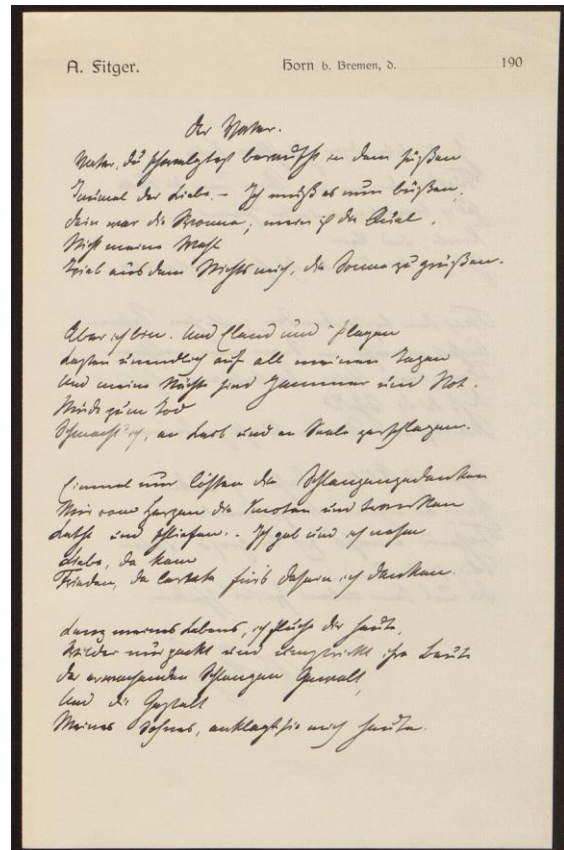 A. Fitger.
Horn b. Bremen, d. 190
Der Vater.
Vater, du schwelgtest berauscht in dem süßen
Taumel der Liebe. – Ich muß es nun büßen,
Dein war die Wonne; mein ist die Qual.
Nicht meine Wahl
Trieb aus dem Nichts mich, die Sonne zu grüßen.
Aber ich bin. Und Elend und Plagen
Lasten unendlich auf all meinen Tagen
Und meine Nächte sind Jammer und Not.
Müde zum Tod
Schmacht' ich, an Leib und an Seele zerschlagen.
Einmal nur lösten die Schlangengedanken
Mir vom Herzen die Knoten und tranken
Lethe und schliefen. – Ich gab und ich nahm
Liebe, da kam
Frieden, da lernte fürs Dasein ich danken.
Lenz meines Lebens, ich fluche dir heute,
Wilder nur packt und umstrickt ihre Beute
Der erwachenden Schlangen Gewalt,
Und die Gestalt
Meines Sohnes, anklagt sie mich heute.